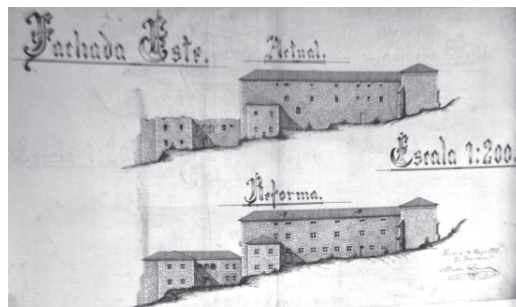 Fachada Este.
Actual.
Escala 1:200.
Reforma.